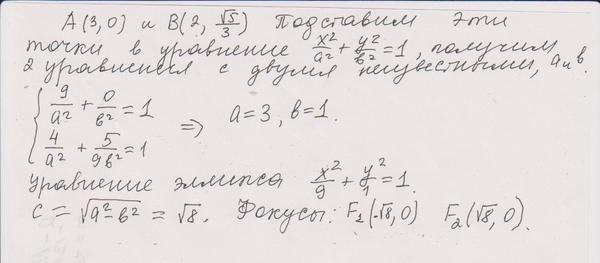 A(3,0) и B(2, √5/3) Подставим эти
точки в уравнение x²/a² + y²/в² = 1, получим
2 уравнения с двумя неизвестными, a и в.
{ 9/a² + 0/в² = 1
{ 4/a² + 5/9в² = 1 ⇒ a = 3, в = 1.
Уравнение эллипса x²/9 + y²/1 = 1.
c = √(a²-в²) = √8. Фокусы: F₁(-√8, 0) F₂(√8, 0).